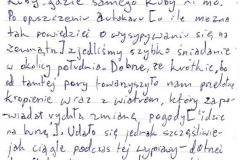 Kuby, gdzie samego Kuby ni mo.
Po opuszczeniu autokaru [o ile można
tak powiedzieć o wysypywaniu się na
zewnątrz] zjedliśmy szybko śniadanie
w okolicy południa. Dobre, że krótkie, bo
od tamtej pory towarzyszyło nam prędkie
kropienie wraz z wiatrem, który zapo-
wiadał rychłą zmianę pogody [idzie
na burzę]. Udało się jednak szczęśliwie
jak ciągle podczas tej wyprawy - dotrzeć